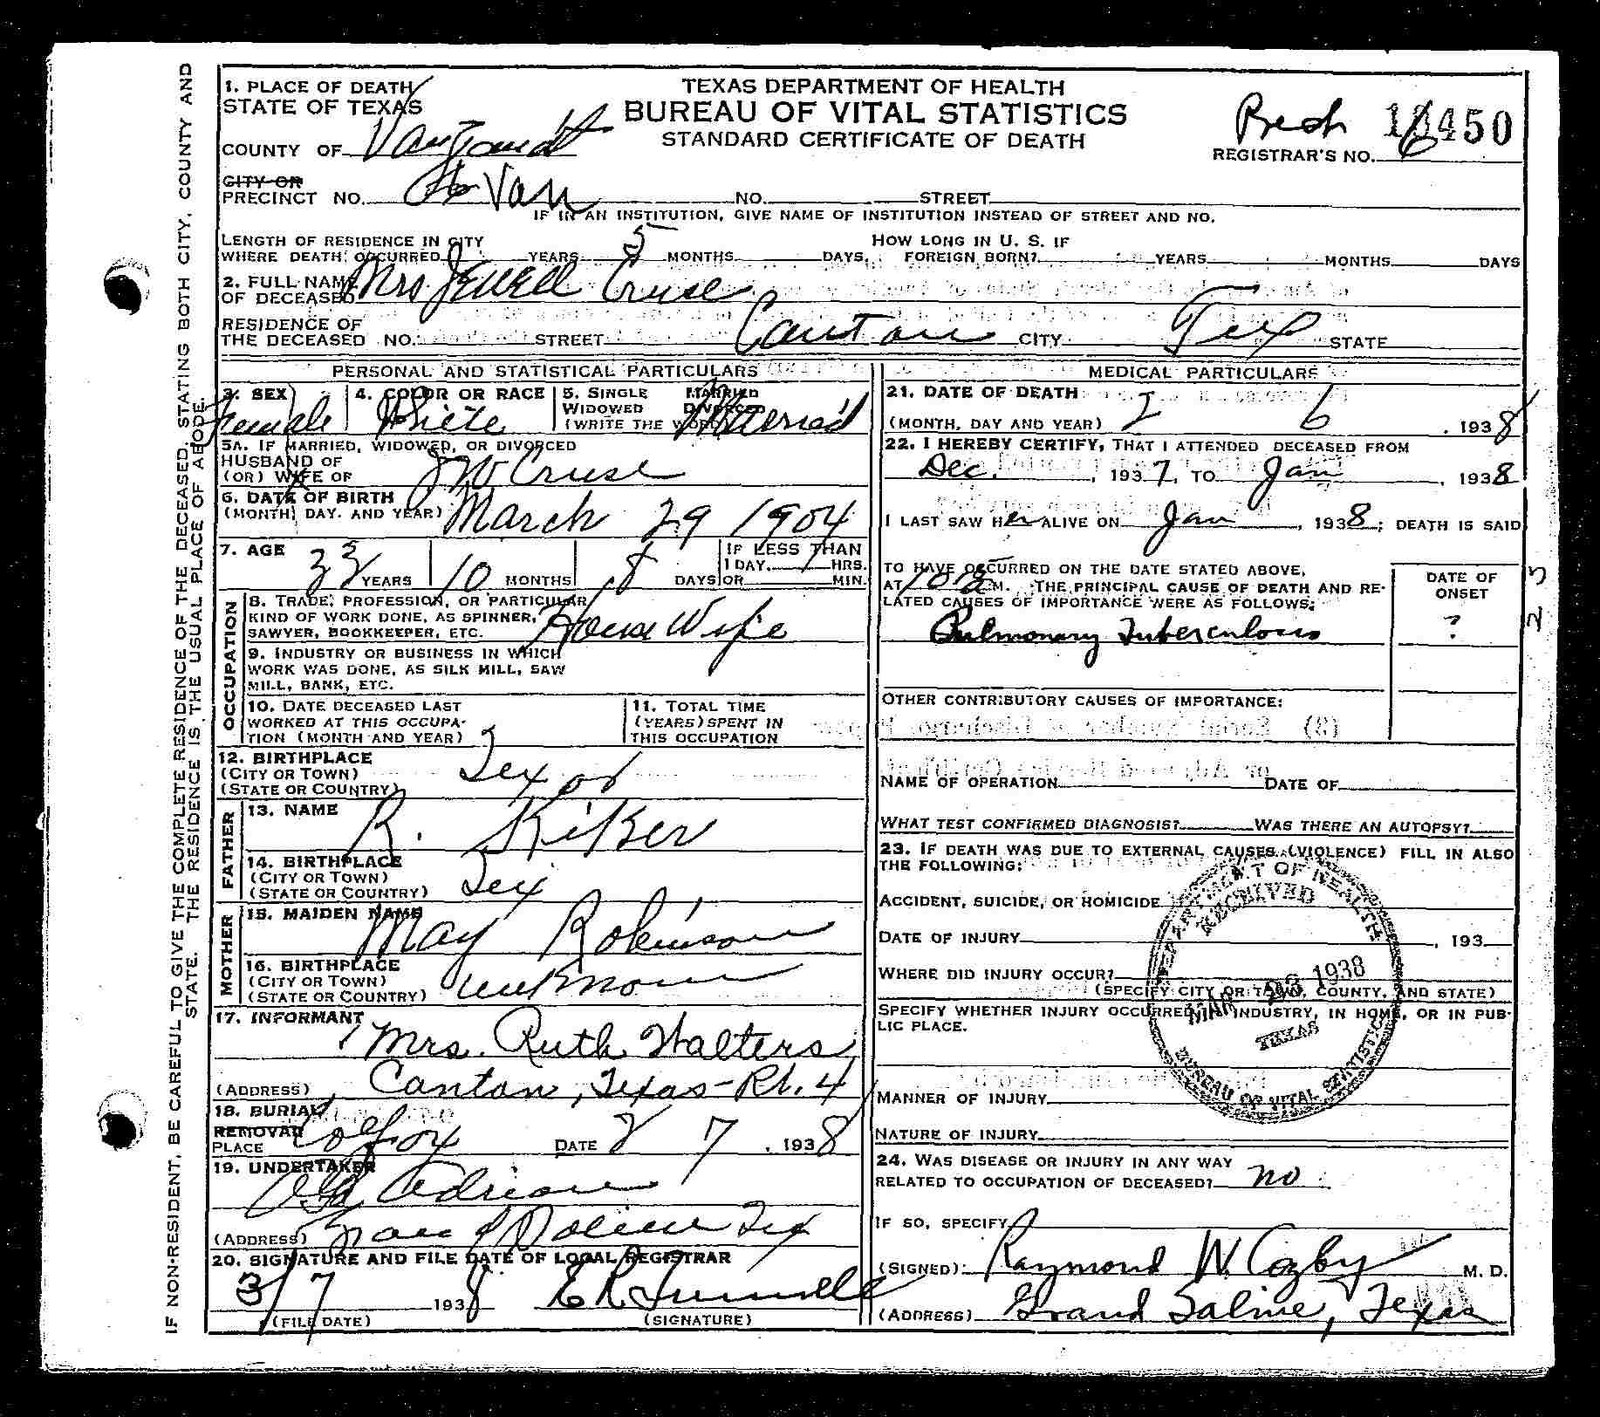 1. PLACE OF DEATH
STATE OF TEXAS
COUNTY OF Vanzandt
CITY OR
PRECINCT NO. Van NO. STREET
TEXAS DEPARTMENT OF HEALTH
BUREAU OF VITAL STATISTICS
STANDARD CERTIFICATE OF DEATH
450
REGISTRAR'S NO. 6
IF IN AN INSTITUTION, GIVE NAME OF INSTITUTION INSTEAD OF STREET AND NO.
LENGTH OF RESIDENCE IN CITY
WHERE DEATH OCCURRED YEARS 5 MONTHS DAYS.
HOW LONG IN U. S. IF
FOREIGN BORN? YEARS MONTHS DAYS
2. FULL NAME
OF DECEASED Mrs Jewell Cruse
RESIDENCE OF
THE DECEASED NO. STREET Canton CITY Tex STATE
PERSONAL AND STATISTICAL PARTICULARS
3. SEX Female
4. COLOR OR RACE White
5. SINGLE MARRIED
WIDOWED DIVORCED
(WRITE THE WORD) Married
5A. IF MARRIED, WIDOWED, OR DIVORCED
HUSBAND OF
(OR) WIFE OF J W Cruse
6. DATE OF BIRTH
(MONTH, DAY, AND YEAR) March 29 1904
7. AGE 33 YEARS 10 MONTHS 8 DAYS
IF LESS THAN
1 DAY, HRS.
OR MIN.
OCCUPATION
8. TRADE, PROFESSION, OR PARTICULAR
KIND OF WORK DONE, AS SPINNER,
SAWYER, BOOKKEEPER, ETC. House Wife
9. INDUSTRY OR BUSINESS IN WHICH
WORK WAS DONE, AS SILK MILL, SAW
MILL, BANK, ETC.
10. DATE DECEASED LAST
WORKED AT THIS OCCUPA-
TION (MONTH AND YEAR)
11. TOTAL TIME
(YEARS) SPENT IN
THIS OCCUPATION
12. BIRTHPLACE
(CITY OR TOWN)
(STATE OR COUNTRY) Texas
FATHER
13. NAME R. Kiker
14. BIRTHPLACE
(CITY OR TOWN)
(STATE OR COUNTRY) Tex
MOTHER
15. MAIDEN NAME May Robinson
16. BIRTHPLACE
(CITY OR TOWN)
(STATE OR COUNTRY) unknown
17. INFORMANT
Mrs. Ruth Walters
(ADDRESS) Canton, Texas - Rt. 4
18. BURIAL
REMOVAL
PLACE Colfax DATE 2 7 , 1938
19. UNDERTAKER
Adrian
(ADDRESS) Grand Saline Tex
20. SIGNATURE AND FILE DATE OF LOCAL REGISTRAR
3/7 1938
(FILE DATE) (SIGNATURE)
MEDICAL PARTICULARS
21. DATE OF DEATH
(MONTH, DAY AND YEAR) 2 6 , 1938
22. I HEREBY CERTIFY, THAT I ATTENDED DECEASED FROM
Dec. , 1937, TO Jan , 1938
I LAST SAW HER ALIVE ON Jan , 1938; DEATH IS SAID
TO HAVE OCCURRED ON THE DATE STATED ABOVE,
AT 10 a M. THE PRINCIPAL CAUSE OF DEATH AND RE-
LATED CAUSES OF IMPORTANCE WERE AS FOLLOWS:
DATE OF
ONSET
Pulmonary Tuberculosis ?
23
OTHER CONTRIBUTORY CAUSES OF IMPORTANCE:
NAME OF OPERATION DATE OF
WHAT TEST CONFIRMED DIAGNOSIS? WAS THERE AN AUTOPSY?
23. IF DEATH WAS DUE TO EXTERNAL CAUSES (VIOLENCE) FILL IN ALSO
THE FOLLOWING:
ACCIDENT, SUICIDE, OR HOMICIDE
DATE OF INJURY , 193
WHERE DID INJURY OCCUR?
(SPECIFY CITY OR TOWN, COUNTY, AND STATE)
SPECIFY WHETHER INJURY OCCURRED IN INDUSTRY, IN HOME, OR IN PUB-
LIC PLACE.
MANNER OF INJURY
NATURE OF INJURY
DEPARTMENT OF HEALTH
RECEIVED
MAR 1938
TEXAS
BUREAU OF VITAL STATISTICS
24. WAS DISEASE OR INJURY IN ANY WAY
RELATED TO OCCUPATION OF DECEASED? no
IF SO, SPECIFY
(SIGNED) Raymond W Cozby M. D.
(ADDRESS) Grand Saline, Texas
IF NON-RESIDENT, BE CAREFUL TO GIVE THE COMPLETE RESIDENCE OF THE DECEASED, STATING BOTH CITY, COUNTY AND
STATE. THE RESIDENCE IS THE USUAL PLACE OF ABODE.